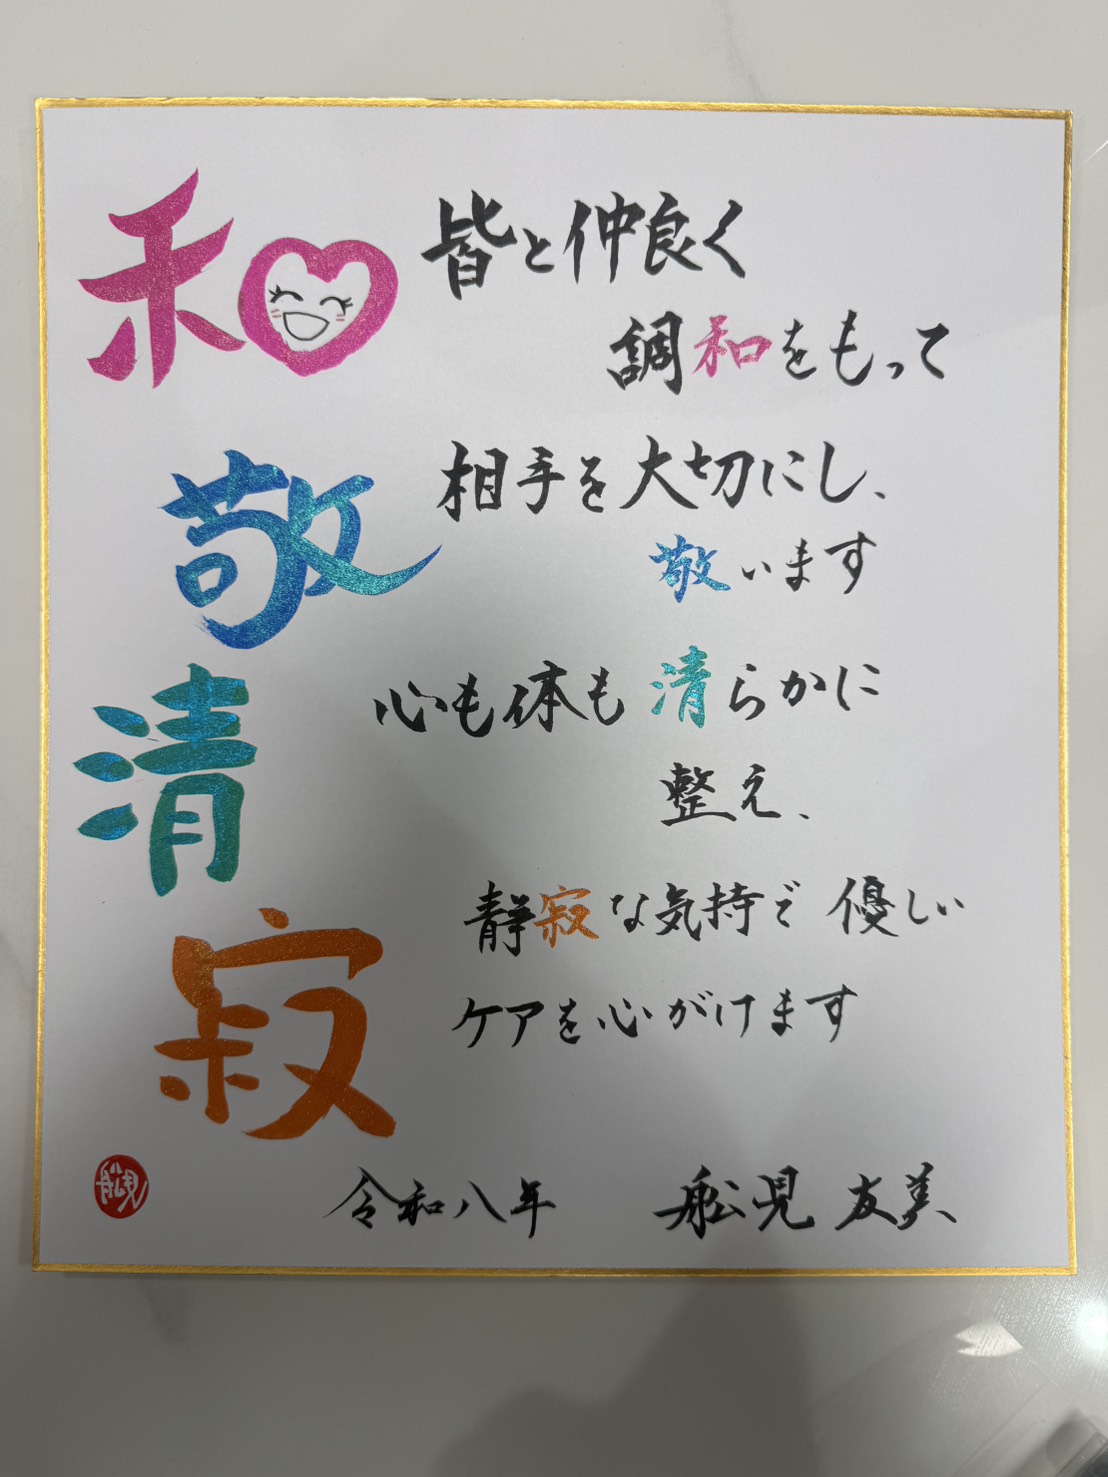 和
皆と仲良く
調和をもって
敬
相手を大切にし、
敬います
清
心も体も清らかに
整え、
寂
静寂な気持で優しい
ケアを心がけます
令和八年 舩見友美
舩見